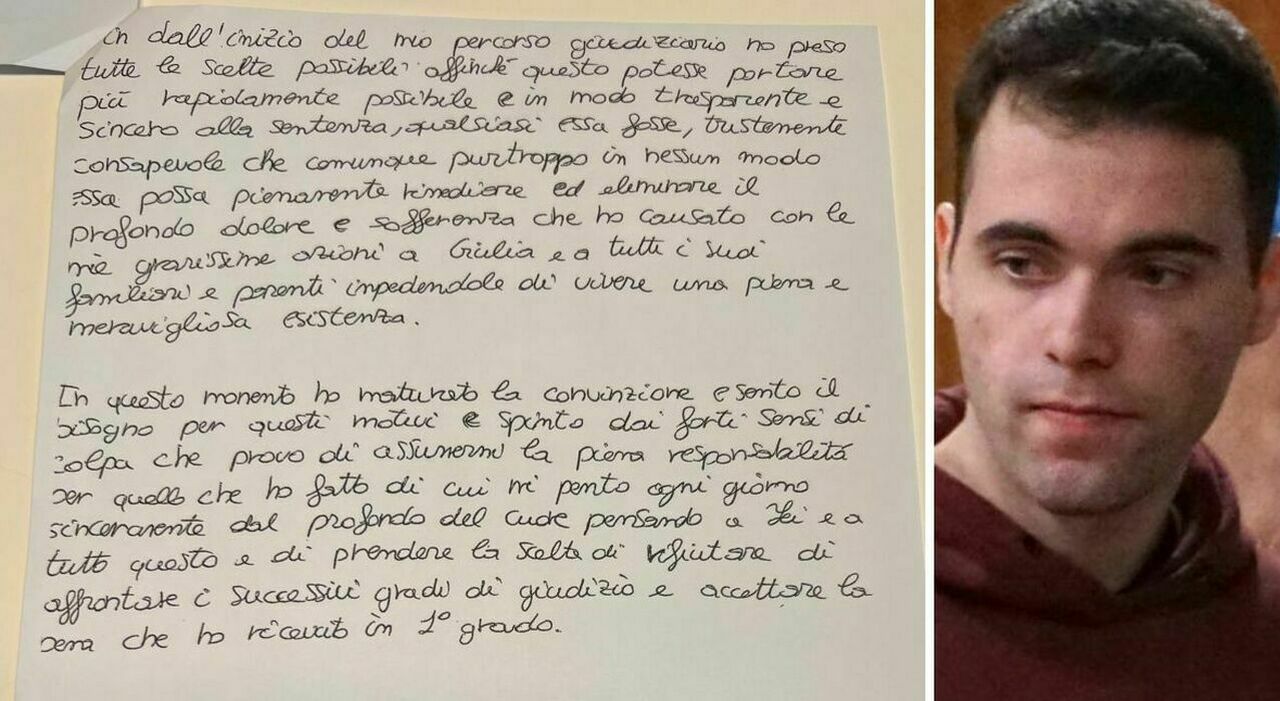 in dall'inizio del mio percorso giudiziario ho preso
tutte le scelte possibili affinché questo potesse portare
più rapidamente possibile e in modo trasparente e
sincero alla sentenza, qualsiasi essa fosse, tristemente
consapevole che comunque purtroppo in nessun modo
essa possa pienamente rimediare ed eliminare il
profondo dolore e sofferenza che ho causato con le
mie gravissime azioni a Giulia e a tutti i suoi
familiari e parenti impedendole di vivere una piena e
meravigliosa esistenza.
In questo momento ho maturato la convinzione e sento il
bisogno per questi motivi e spinto dai forti sensi di
colpa che provo di assumermi la piena responsabilità
per quello che ho fatto di cui mi pento ogni giorno
sinceramente dal profondo del cuore pensando a lei e a
tutto questo e di prendere la scelta di rifiutare di
affrontare i successivi gradi di giudizio e accettare la
pena che ho ricevuto in 1° grado.